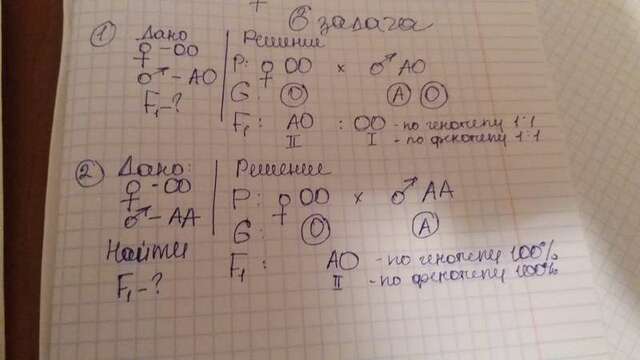 6 задача
① Дано Решение
♀ - OO P: ♀ OO × ♂ AO
♂ - AO G: O A O
F₁ - ? F₁: AO : OO - по генотипу 1:1
II I - по фенотипу 1:1
② Дано: Решение
♀ - OO P: ♀ OO × ♂ AA
♂ - AA G: O A
Найти F₁: AO - по генотипу 100%
F₁ - ? II - по фенотипу 100%